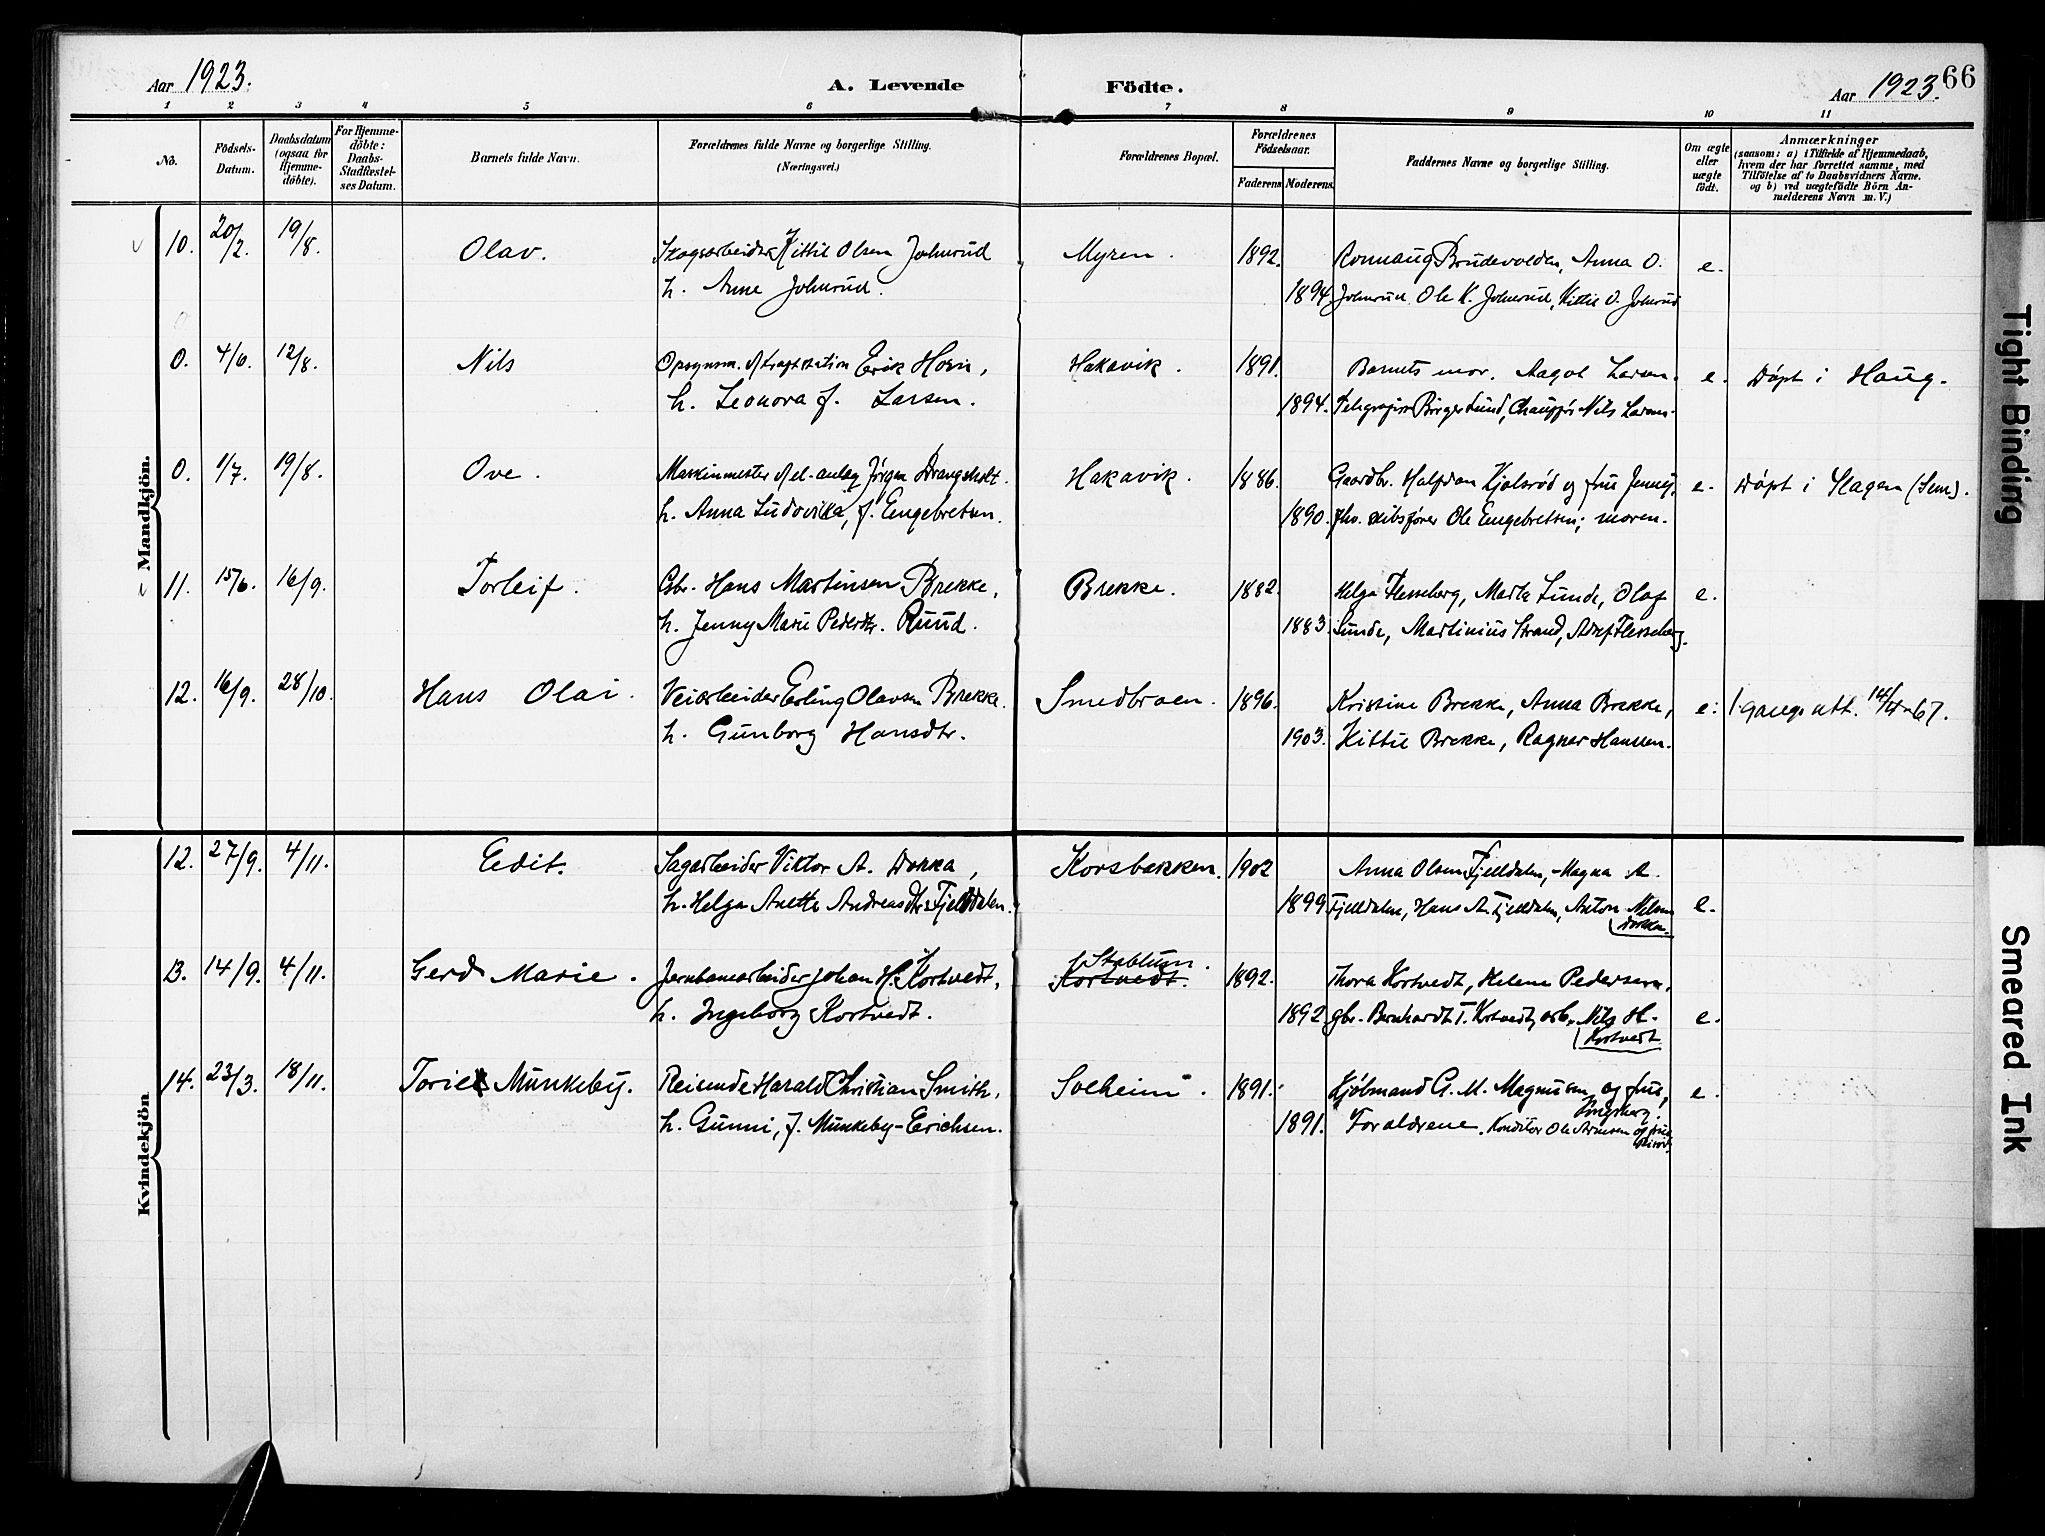 Aar 1923.
A. Levende Födte.
Aar 1923.
66
1 2 3 4 5 6 7 8 9 10 11
No.
Födsels-
Datum.
Daabsdatum
(ogsaa for
Hjemme-
döbte).
For Hjemme-
döbte:
Daabs-
Stadfæstel-
ses Datum.
Barnets fulde Navn.
Forældrenes fulde Navne og borgerlige Stilling.
(Næringsvei.)
Forældrenes Bopæl.
Forældrenes
Födselsaar.
Faderens
Moderens.
Faddernes Navne og borgerlige Stilling.
Om ægte
eller
uægte
födt.
Anmærkninger
(saasom: a) i Tilfælde af Hjemmedaab,
hvem der har forrettet samme, med
Tilföielse af to Daabsvidners Navne.
og b) ved uægtefödte Börn An-
melderens Navn m. V.)
Mandkjön.
10. 20/2. 19/8. Olav. Skogsarbeider Kittil Olsen Johnsrud Myren. 1892. Ronnaug Brudevolden, Anna O. e.
h. Anne Johnsrud. 1894. Johnsrud. Ole K. Johnsrud, Kittil O. Johnsrud
0. 4/6. 12/8. Nils Opsynsm. v/kraftstation Erik Horn, Hakavik. 1891. Barnets mor. Aagot Larsen. e. Døpt i Haug.
h. Leonora f. Larsen. 1894. Telegrafist Birger Lund, Chauffør Nils Larsen.
0. 1/7. 19/8. Ove. Maskinmester v/el-anlæg Jørgen Drangsholt. Hakavik. 1886. Gaardbr. Halfdan Kjølsrød og fru Jenny, e. Døpt i Slagen (Sem).
h. Anna Ludovika, f. Engebretsen. 1890. fhv. skibsfører Ole Engebretsen; moren.
11. 15/6. 16/9. Torleif. Gbr. Hans Martinsen Brekke, Brekke. 1882. Helga Flesseberg, Marta Lunde, Olaf e.
h. Jenny Marie Pedersdtr. Ruud. 1883. Lunde, Martinius Strand, Adolf Flesseberg.
12. 16/9. 28/10. Hans Olai. Veiarbeider Erling Olavsen Brekke. Smedbroen. 1896. Kristine Brekke, Anna Brekke, e. 1. gangs att. 14/4-67.
h. Gunborg Hansdtr. 1903. Kittil Brekke, Ragnar Hanssen.
Kvindekjön
12. 27/9. 4/11. Edit. Sagarbeider Viktor A. Dokka, Korsbakken. 1902 Anna Olsen Fjelldalen, Magna A.
h. Helga Anette Andreasdtr. Fjelldalen. 1899 Fjelldalen, Hans A. Fjelldalen, Anton Nilsen e.
Dokka.
13. 14/9. 4/11. Gerd Marie. Jernbanearbeider Johan H. Kortvedt, Stablum. Kortvedt. 1892. Thora Kortvedt, Helene Pedersen,
h. Ingeborg Kortvedt. 1892 gbr. Bernhardt T. Kortvedt, arb. Nils H. e.
Kortvedt
14. 23/3. 18/11. Toril Munkeby. Reisende Harald Christian Smith, Solheim. 1891. Kjøbmand G. M. Magnusen og frue, e.
Kongsberg.
h. Gunni, f. Munkeby-Erichsen. 1891. Foraldrene. Konditor Ole Arnesen og frue
Tight Binding
Smeared Ink